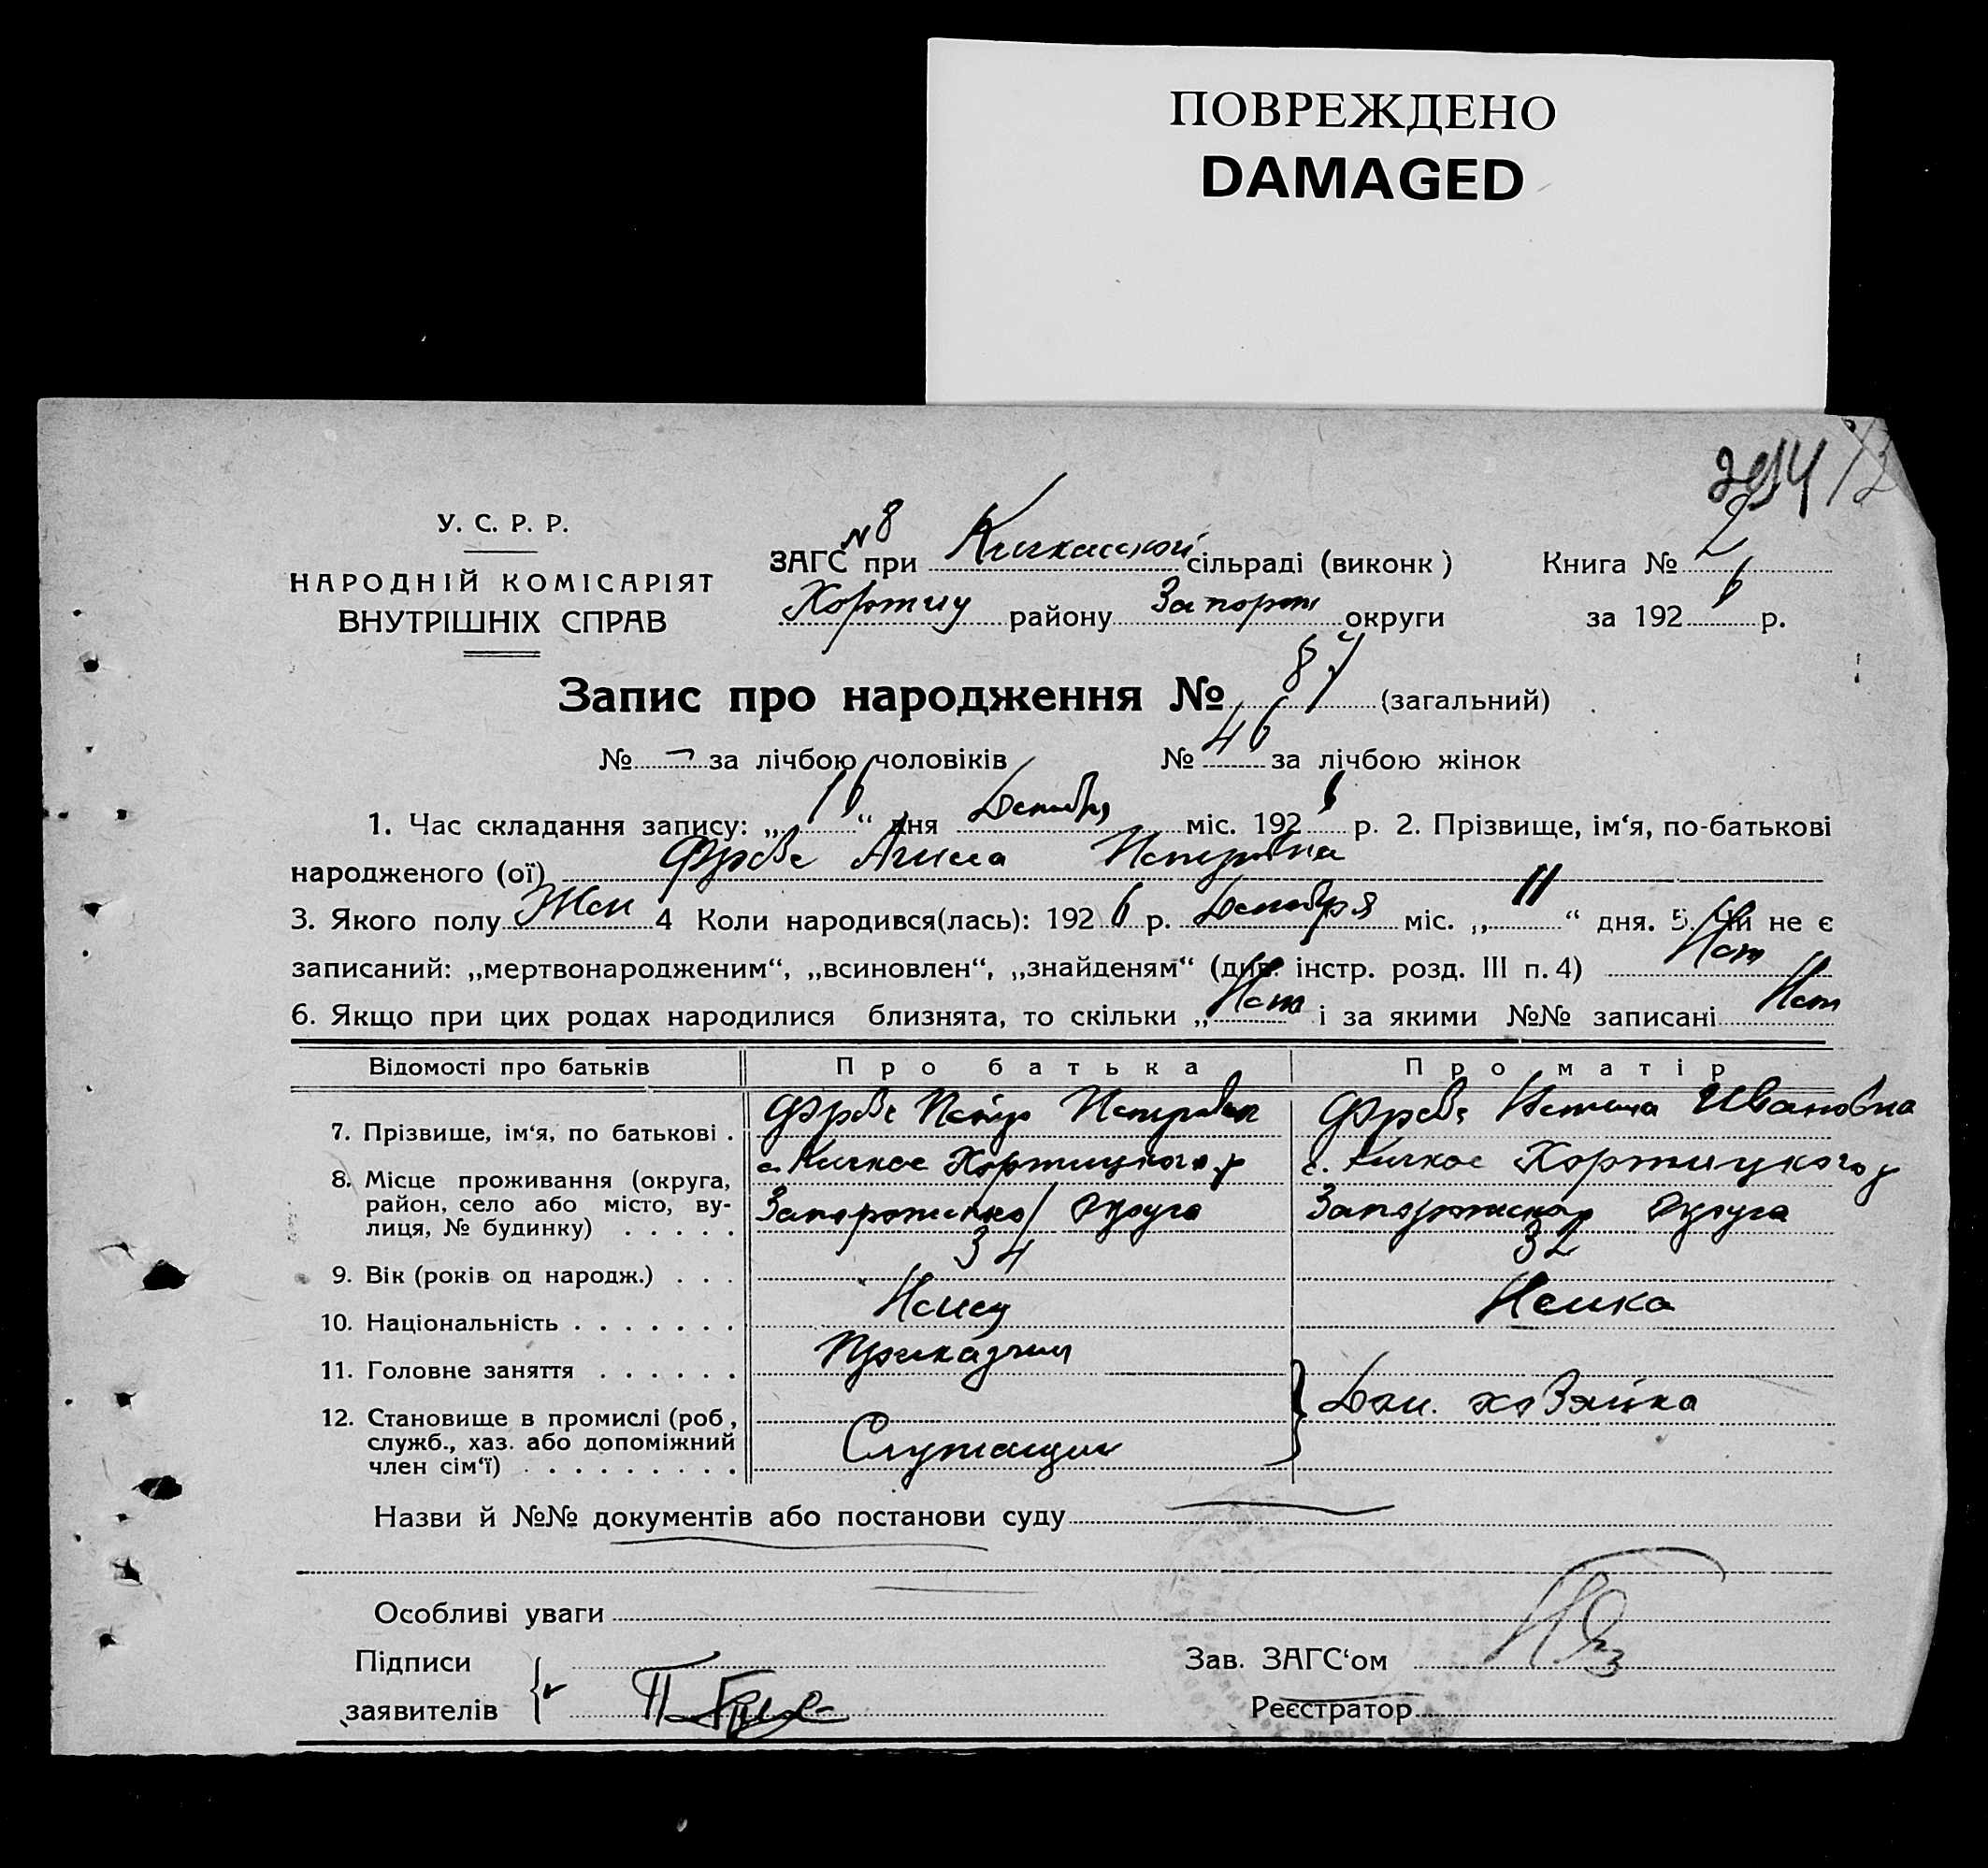 ПОВРЕЖДЕНО
DAMAGED
У. С. Р. Р.
НАРОДНІЙ КОМІСАРІЯТ
ВНУТРІШНІХ СПРАВ
№ 8
ЗАГС при Кичкасской сільраді (виконк) Книга № 2
Хортиц району Запорож округи за 1926 р.
Запис про народження № 87 (загальний)
№ – за лічбою чоловіків № 46 за лічбою жінок
1. Час складання запису: „16“ дня Декабря міс. 1926 р. 2. Прізвище, ім‘я, по-батькові
народженого (ої) Фрезе Петровна
3. Якого полу Жен 4 Коли народився(лась): 1926 р. Декабря міс. „11“ дня. 5. Чи не є
записаний: „мертвонародженим“, „всиновлен“, „знайденям“ (див. інстр. розд. III п. 4) Нет
6. Якщо при цих родах народилися близнята, то скільки „Нет і за якими №№ записані Нет
Відомості про батьків Про батька Про матір
7. Прізвище, ім‘я, по батькові . Фрезе Петр Петрович Фрезе Ивановна
8. Місце проживання (округа, с. Кичкас Хортицкого р с. Кичкас Хортицкого р
район, село або місто, ву- Запорожского округа Запорожского округа
лиця, № будинку) . . . . .
9. Вік (років од народж.) . . . 34 32
10. Національність . . . . . . . Немец Немка
11. Головне заняття . . . . . . Приказчик
12. Становище в промислі (роб, Служащий Дом. хозяйка
служб., хаз. або допоміжний
член сім‘ї) . . . . . . . . .
Назви й №№ документів або постанови суду
Особливі уваги
Підписи Зав. ЗАГС‘ом
заявителів Реєстратор